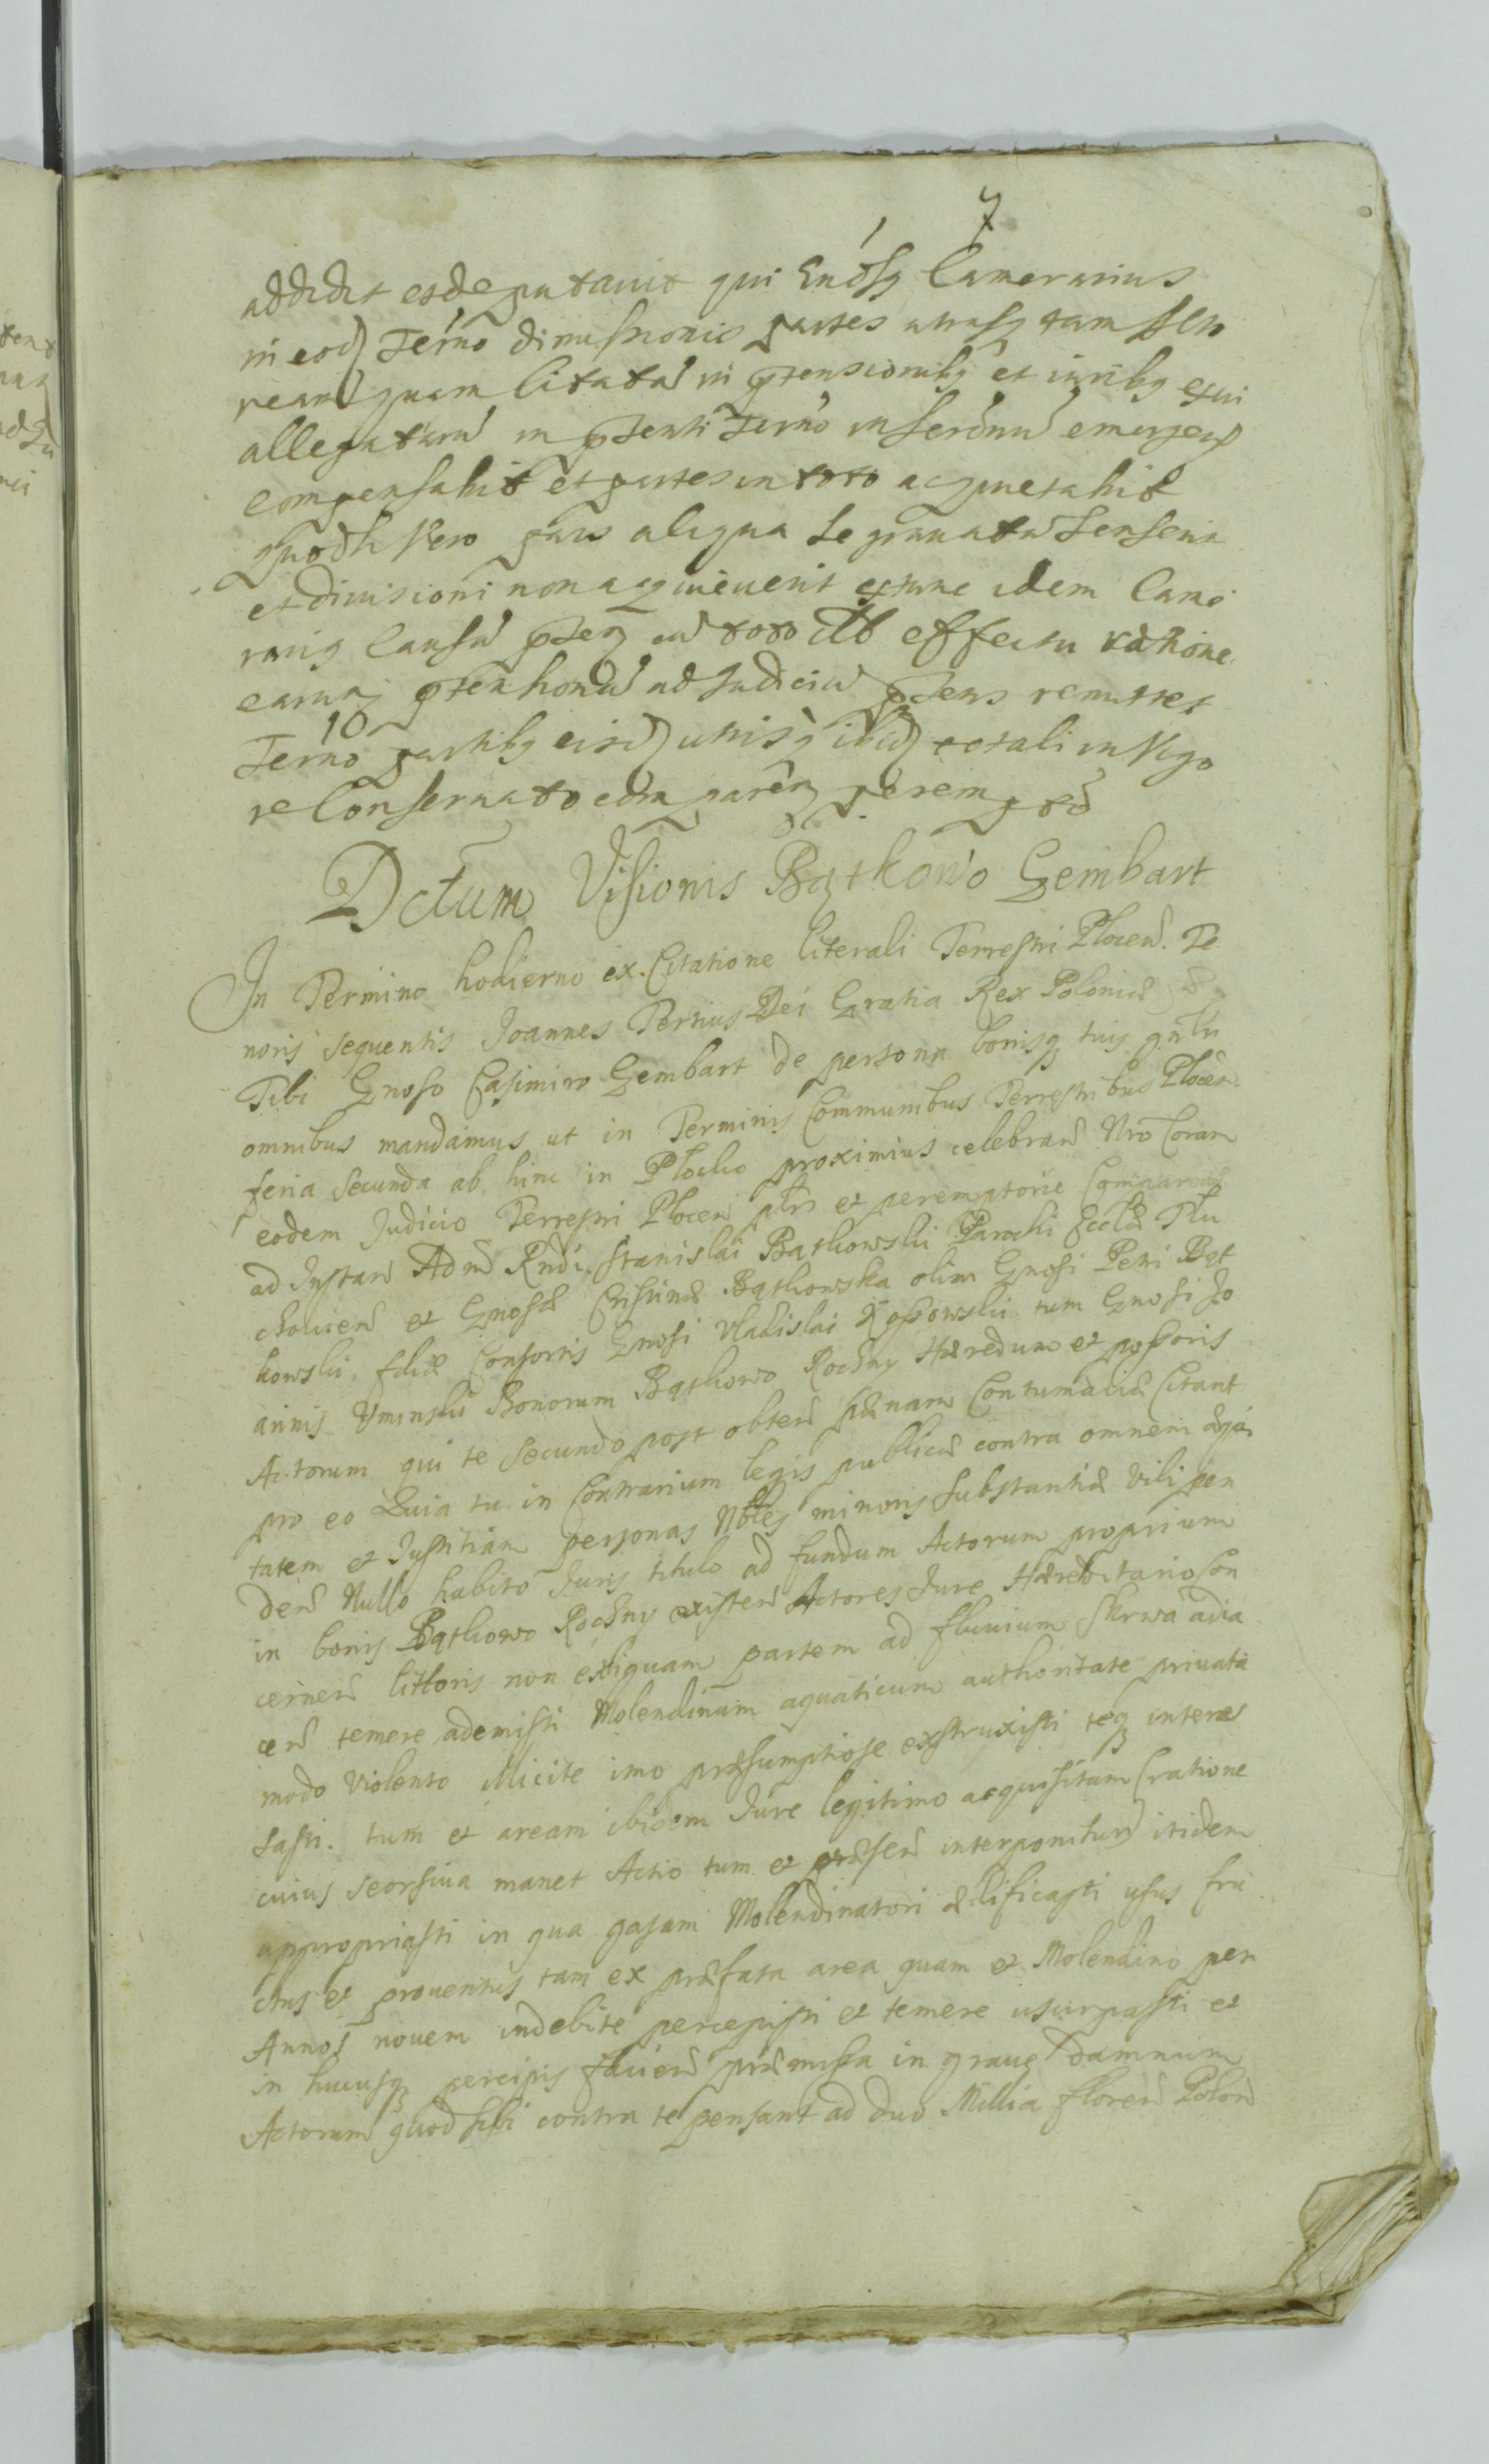 7
addidit et deputavit qui Gnosq Camerarius
in eod Termo dimissionis partes utrasq tam Acto
ream quam Citatam in ptensionibq et iuribq exui
allegatarum in pnti Termo inserenm emergen
compensabit et partes in toto acquietabit
quodsi Vero pars aliqua se gravatam senserit
et divisioni non acquieuerit extunc idem Came
rariq Causam pntem cum toto illo effectu ratione
earum ptensionum ad Judicium pnens remittet
Termo partibq eisd utrisq ibid eo tali in Vigo
re Conservato comparen peremptor
Dctum Visionis Bątkowo Gembart
In Termino hodierno ex Citatione literali Terrestri Plocen. Te
noris sequentis Joannes Tertius Dei Gratia Rex Poloniæ &
Tibi Gnoso Casimiro Gembart de persona bonisq tuis gnlr
omnibus mandamus ut in Terminis Communibus Terrestribus Plocen.
feria secunda ab hinc in Plocko proximius celebran Nro Coram
eodem Judicio Terrestri Plocen plr et peremptorie Compareas
ad Instan Adm Rndi Stanislai Bątkowski Parochi Ecclæ Thu
choviên et Gnosæ Cristinæ Bątkowska olim Gnosi Petri Bąt
kowski filiæ Consortis Gnosi Vladislai Kossowski tum Gnosi Jo
annis Uminski Bonorum Bątkowo Rochny Hæredum et possoris
Actorum qui te secundo post obten pænam Contumaciæ Citant
pro eo Quia tu in Contrarium legis publicæ contra omnem æqui
tatem et Justitiam personas Nbles minoris substantiæ vilipen
den Nullo habito Juris titulo ad fundum Actorum proprium
in bonis Bątkowo Rochny existen Actores Jure Hæreditario con
cernen littoris non exiguam partem ad fluvium Skrwa adia
cen temere ademisti Molendinum aquaticum authoritate privata
modo violento illicite imo præsumptiose exstruxisti teq interes
sasti. tum et aream ibidem Jure legitimo acquisitam (ratione
cuius seorsiva manet Actio tum et præsen interponitur) itidem
appropriasti in qua gasam Molendinatori ædificasti usus fru
ctus et proventus tam ex præfata area quam et Molendino per
Annos novem indebite percepisti et temere usurpasti et
in hucusq percipis facien præmissa in grave damnum
Actorum quod sibi contra te pensant ad duo Millia floren Polon